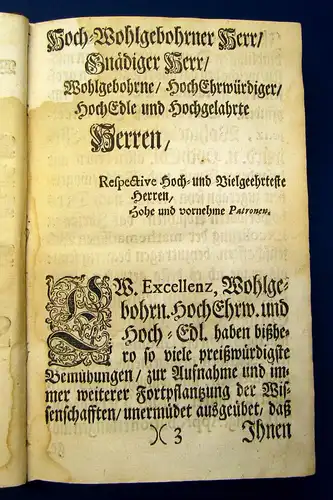 Hoch-Wohlgebohrner Herr/
Gnädiger Herr/
Wohlgebohrne/ HochEhrwürdiger/
HochEdle und Hochgelahrte
Herren,
Respective Hoch- und Vielgeehrteste
Herren,
Hohe und vornehme Patronen.
EW. Excellenz, Wohlge-
bohrn. HochEhrw. und
Hoch-Edl. haben bißhe-
ro so viele preißwürdigste
Bemühungen/ zur Aufnahme und im-
mer weiterer Fortpflantzung der Wis-
senschafften/ unermüdet ausgeübet, daß
)( 3 Ihnen